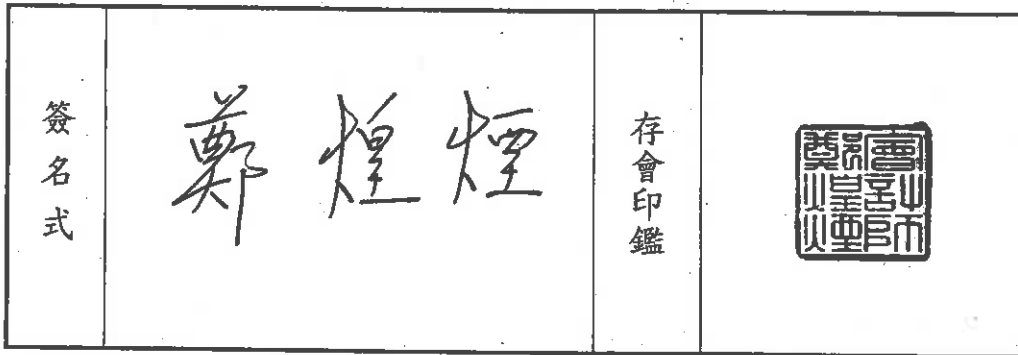 簽名式
鄭煌煙
存會印鑑
會計師
鄭煌煙